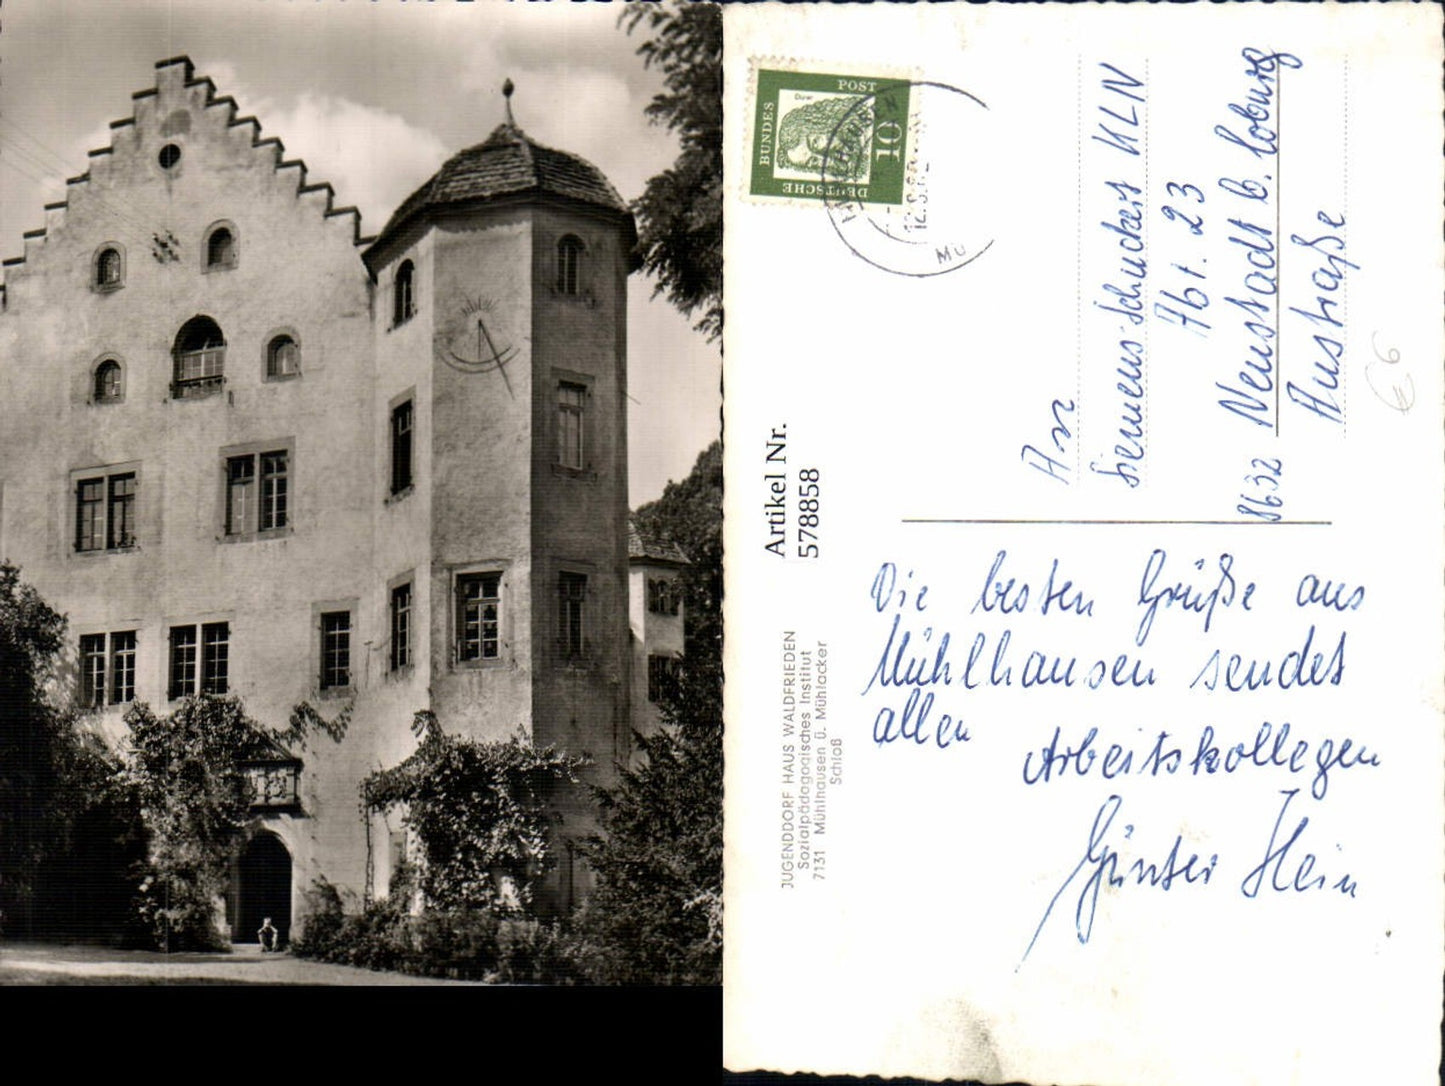 BUNDES
POST
DEUTSCHE
10
Dürer
Artikel Nr.
578858
JUGENDDORF HAUS WALDFRIEDEN
Sozialpädagogisches Institut
7131 Mühlhausen ü. Mühlacker
Schloß
An
Siemens-Schuckert KLIV
Abt. 23
8632 Neustadt b. Coburg
Austraße
€6
Die besten Grüße aus
Mühlhausen sendet
allen
Arbeitskollegen
Günter Hein